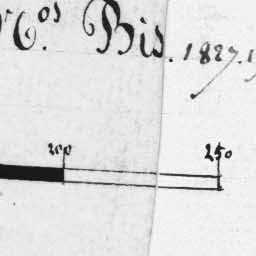 N.os Bis. 1827.
200 250